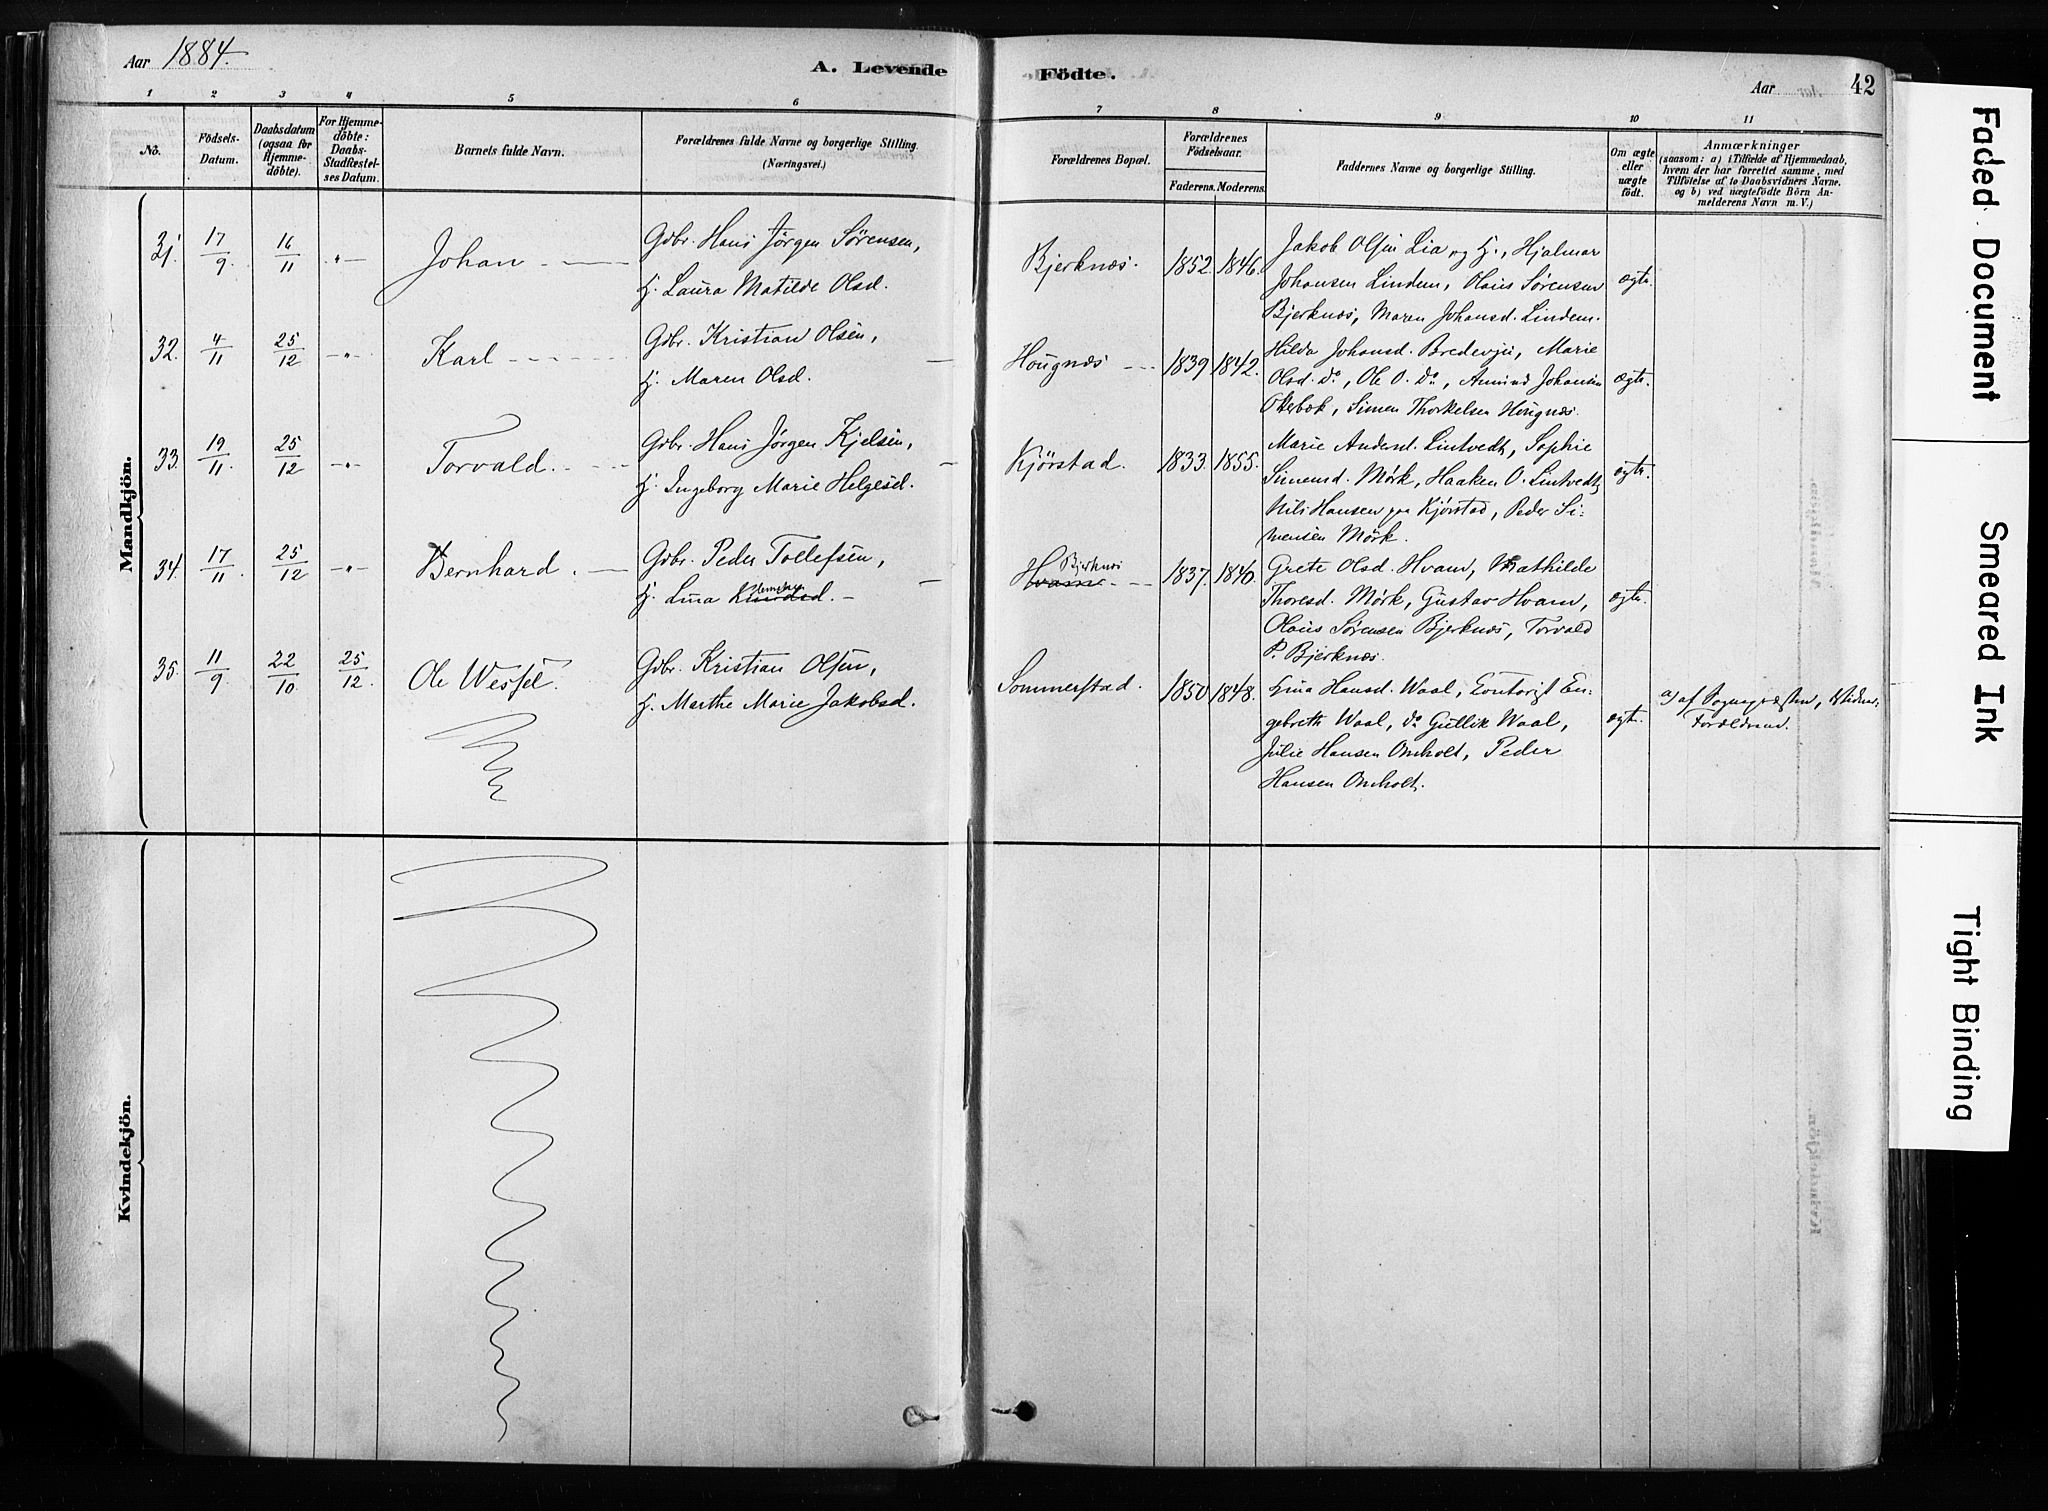 Aar 1884.
A. Levende Födte.
Aar
42
1 2 3 4 5 6 7 8 9 10 11
No.
Födsels-
Datum.
Daabsdatum
(ogsaa for
Hjemme-
döbte).
For Hjemme-
döbte:
Daabs-
Stadfæstel-
ses Datum.
Barnets fulde Navn.
Forældrenes fulde Navne og borgerlige Stilling.
(Næringsvei.)
Forældrenes Bopæl.
Forældrenes
Födselsaar.
Faderens. Moderens.
Faddernes Navne og borgerlige Stilling.
Om ægte
eller
uægte
födt.
Anmærkninger
(saasom: a) i Tilfælde af Hjemmedaab,
hvem der har forrettet samme, med
Tilföielse af to Daabsvidners Navne.
og b) ved uægtefödte Börn An-
melderens Navn m. V.)
Mandkjön.
31. 17/9 16/11 -"- Johan
Gdbr. Hans Jørgen Sørensen,
H. Laura Matilde Olsd.
Bjerknæs. 1852. 1846.
Jakob Olsen Lia og H., Hjalmar
Johansen Lindem, Olaus Sørensen
Bjerknæs, Maren Johansd. Lindem.
ægte.
32. 4/11 25/12 -"- Karl
Gdbr. Kristian Olsen,
H. Maren Olsd.
Hougnæs 1839 1842.
Hilda Johansd. Bredevju, Marie
Olsd. do, Ole O. do, Amund Johansen
Otterbæk, Simen Thorkelsen Hougnæs.
ægte.
33. 19/11. 25/12 -"- Torvald.
Gdbr. Hans Jørgen Kjelsen,
H. Ingeborg Marie Helgesd.
Kjørstad. 1833. 1855.
Marie Andersd. Lintvedt, Sophie
Simensd. Mørk, Haaken O. Lintvedt,
Nils Hansen paa Kjørstad, Peder Si-
mensen Mørk.
ægte.
34. 17/11. 25/12 -"- Bernhard.
Gdbr. Peder Tollefsen,
H. Lina Knudsd.
Bjerknæs
Hvam 1837. 1840.
Grete Olsd. Hvam, Mathilde
Thoresd. Mørk, Gustav Hvam,
Olaus Sørensen Bjerknæs, Torvald
P. Bjerknæs.
ægte.
35. 11/9 22/10 25/12. Ole Wessel.
Gdbr. Kristian Olsen,
H. Marthe Marie Jakobsd.
Sommerstad. 1850 1848.
Lina Hansd. Waal, Contorist En-
gebreth Waal, do Gullik Waal,
Julie Hansen Omholt, Peder
Hansen Omholt.
ægte.
a) af Sognepræsten,
Forældrene.
Kvindekjön.
Faded Document
Smeared Ink
Tight Binding